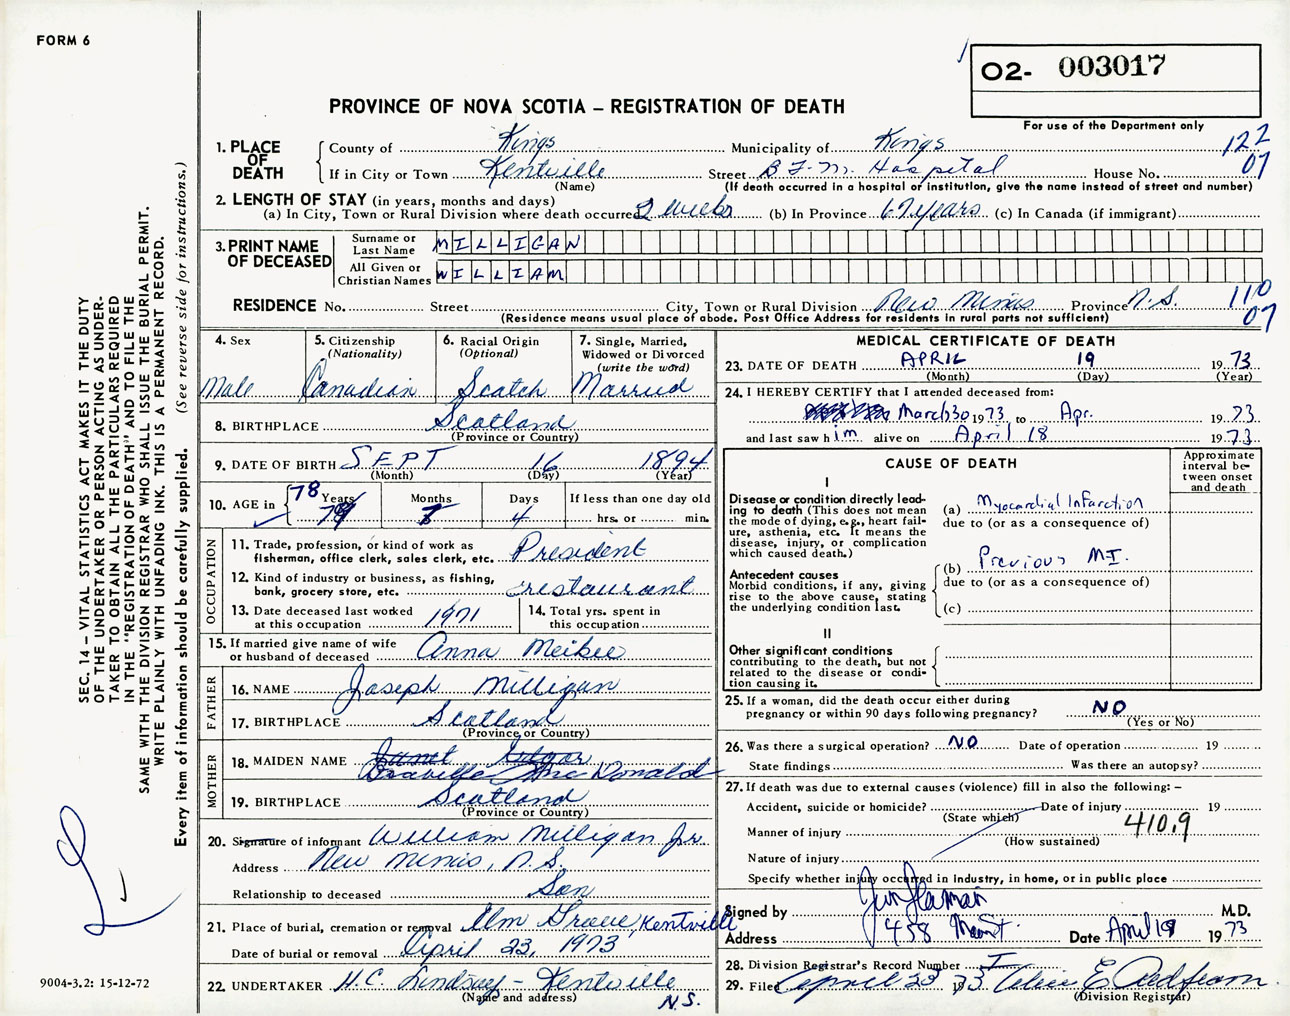 FORM 6
02- 003017
PROVINCE OF NOVA SCOTIA – REGISTRATION OF DEATH
For use of the Department only
1. PLACE OF DEATH
County of Kings Municipality of Kings 122
If in City or Town Kentville Street B.F.M. Hospital House No. 07
(Name) (If death occurred in a hospital or institution, give the name instead of street and number)
2. LENGTH OF STAY (in years, months and days)
(a) In City, Town or Rural Division where death occurred 2 weeks (b) In Province 67 years (c) In Canada (if immigrant)
3. PRINT NAME OF DECEASED
Surname or Last Name MILLIGAN
All Given or Christian Names WILLIAM
RESIDENCE No. Street City, Town or Rural Division New Minas Province N.S. 110
(Residence means usual place of abode. Post Office Address for residents in rural parts not sufficient) 07
4. Sex Male
5. Citizenship (Nationality) Canadian
6. Racial Origin (Optional) Scotch
7. Single, Married, Widowed or Divorced (write the word) Married
8. BIRTHPLACE Scotland
(Province or Country)
9. DATE OF BIRTH SEPT 16 1894
(Month) (Day) (Year)
10. AGE in 78 Years Months 7 Days 4 If less than one day old
hrs. or min.
OCCUPATION
11. Trade, profession, or kind of work as fisherman, office clerk, sales clerk, etc. President
12. Kind of industry or business, as fishing, bank, grocery store, etc. restaurant
13. Date deceased last worked at this occupation 1971
14. Total yrs. spent in this occupation
15. If married give name of wife or husband of deceased Anna
FATHER
16. NAME Joseph Milligan
17. BIRTHPLACE Scotland
(Province or Country)
MOTHER
18. MAIDEN NAME Isabelle McDonald
19. BIRTHPLACE Scotland
(Province or Country)
20. Signature of informant William Milligan Jr.
Address New Minas, N.S.
Relationship to deceased Son
21. Place of burial, cremation or removal Elm Grove, Kentville
Date of burial or removal April 23, 1973
22. UNDERTAKER H.C. Lindsay – Kentville
(Name and address) N.S.
MEDICAL CERTIFICATE OF DEATH
23. DATE OF DEATH APRIL 19 1973
(Month) (Day) (Year)
24. I HEREBY CERTIFY that I attended deceased from:
March 30 1973 to Apr. 1973
and last saw him alive on April 18 1973
CAUSE OF DEATH
Approximate interval between onset and death
I
Disease or condition directly leading to death (This does not mean the mode of dying, e.g., heart failure, asthenia, etc. It means the disease, injury, or complication which caused death.)
(a) Myocardial Infarction
due to (or as a consequence of)
Antecedent causes
Morbid conditions, if any, giving rise to the above cause, stating the underlying condition last.
(b) Previous M.I.
due to (or as a consequence of)
(c)
II
Other significant conditions
contributing to the death, but not related to the disease or condition causing it.
25. If a woman, did the death occur either during pregnancy or within 90 days following pregnancy? NO
(Yes or No)
26. Was there a surgical operation? NO Date of operation 19
State findings Was there an autopsy?
27. If death was due to external causes (violence) fill in also the following: –
Accident, suicide or homicide? Date of injury 19
(State which)
Manner of injury 410.9
(How sustained)
Nature of injury
Specify whether injury occurred in industry, in home, or in public place
Signed by M.D.
Address 458 Date April 19 1973
28. Division Registrar's Record Number
29. Filed April 23 1973 E. Redfearn
(Division Registrar)
SEC. 14 – VITAL STATISTICS ACT MAKES IT THE DUTY
OF THE UNDERTAKER OR PERSON ACTING AS UNDER-
TAKER TO OBTAIN ALL THE PARTICULARS REQUIRED
IN THE "REGISTRATION OF DEATH" AND TO FILE THE
SAME WITH THE DIVISION REGISTRAR WHO SHALL ISSUE THE BURIAL PERMIT.
WRITE PLAINLY WITH UNFADING INK. THIS IS A PERMANENT RECORD.
Every item of information should be carefully supplied. (See reverse side for instructions.)
9004-3.2: 15-12-72